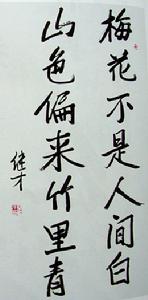 梅花不是人间白
山色偏来竹里青
继才